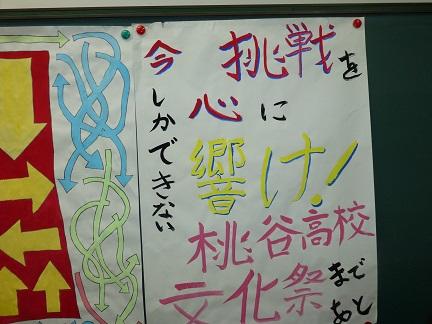 今しかできない
挑戦を
心に
響け！
桃谷高校
文化祭まで
あと